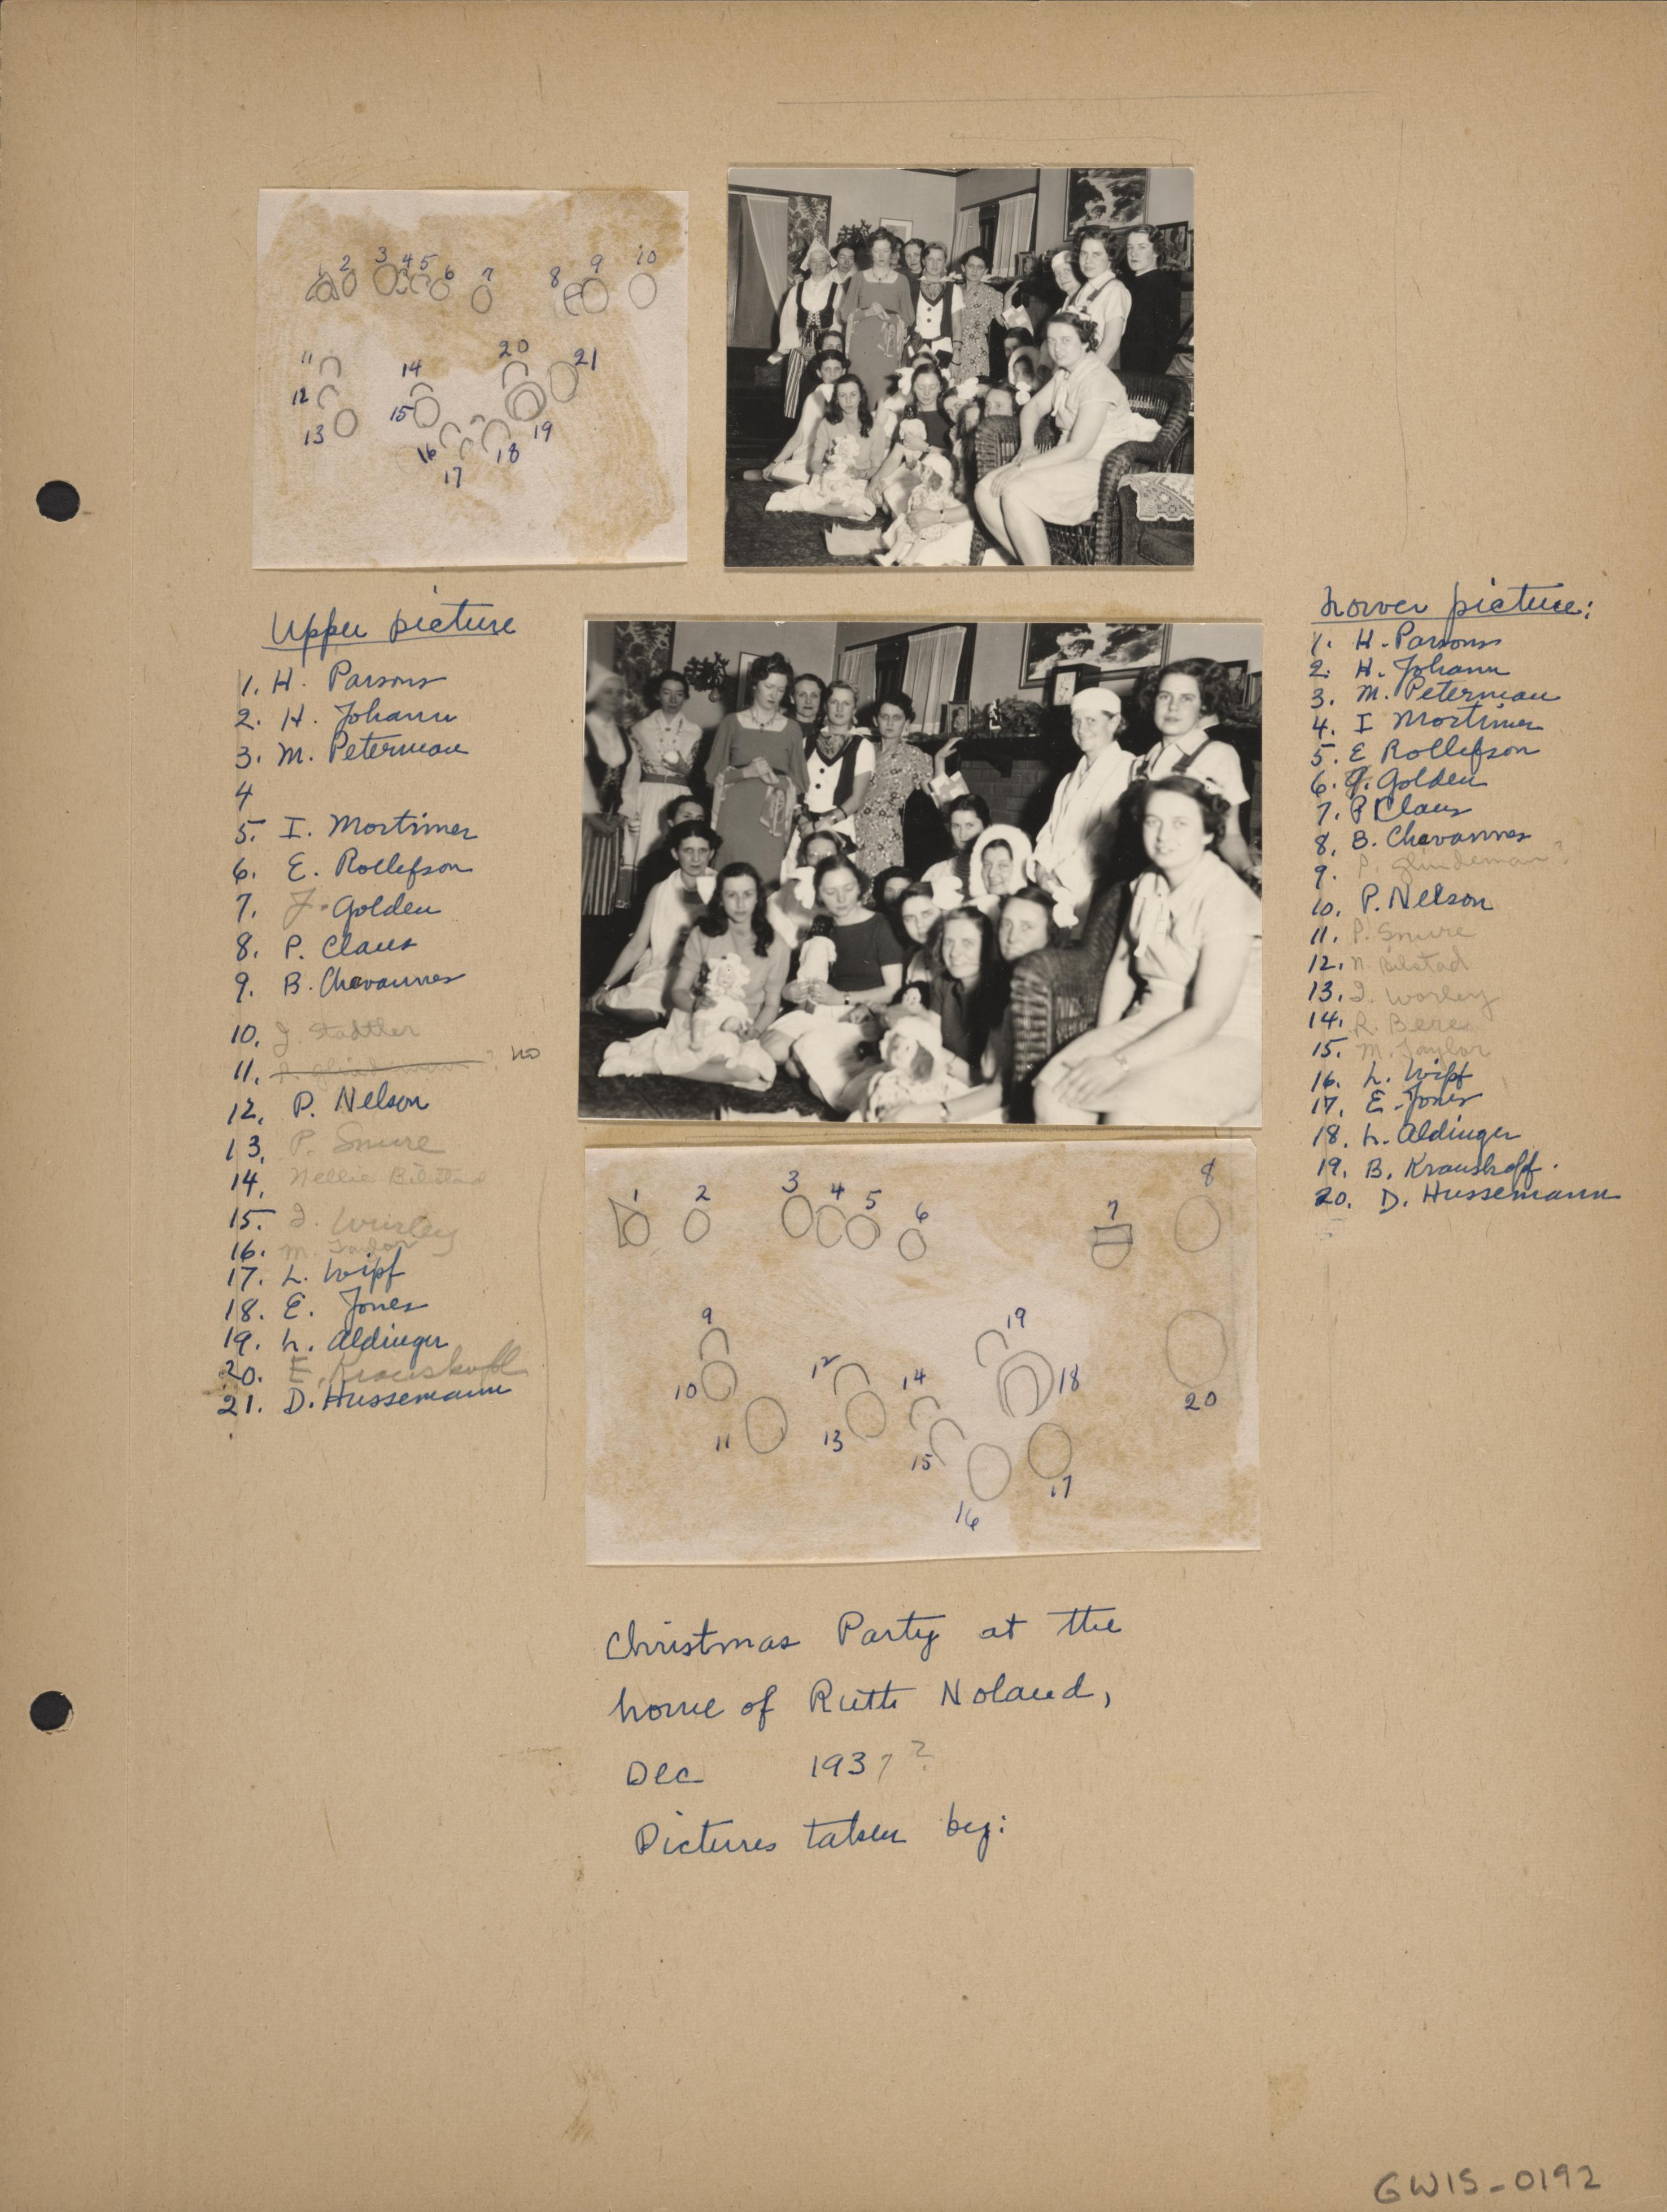 1 2 3 4 5 6 7 8 9 10
11 12 13 14 15 16 17 18 19 20 21
Upper picture
1. H. Parsons
2. H. Johann
3. M. Peterman
4
5. I. Mortimer
6. E. Rollefson
7. J. Golden
8. P. Claus
9. B. Chavannes
10. J. Stadtler
11. ? no
12. P. Nelson
13. P. Smire
14. Nellie Bilstad
15. I. Worley
16. M. Taylor
17. L. Wipf
18. E. Jones
19. L. Aldinger
20. E. Krauskopf
21. D. Hussemann
Lower picture:
1. H. Parsons
2. H. Johann
3. M. Peterman
4. I Mortimer
5. E Rollefson
6. J. Golden
7. P Claus
8. B. Chavannes
9. P. Glindeman?
10. P. Nelson
11. P. Smire
12. N. Bilstad
13. I. Worley
14. R. Bere
15. M. Taylor
16. L. Wipf
17. E. Jones
18. L. Aldinger
19. B. Krauskopf.
20. D. Hussemann
1 2 3 4 5 6 7 8
9 10 11 12 13 14 15 16 17 18 19 20
Christmas Party at the
home of Ruth Noland,
Dec 1937?
Pictures taken by:
GWIS-0192